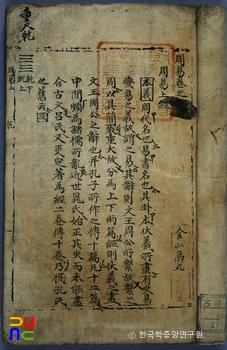 周易卷之一
周易上經
本義周代名也易書名也其卦本伏羲所畫有交易
變易之義故謂之易其辭則文王周公所繫故繫之
周以其簡袠重大故分為上下兩篇經則伏羲之畫
文王周公之辭也并孔子所作之傳十篇凡十二篇
中間頗為諸儒所亂近世晁氏始正其失而未能盡
合古文呂氏又更定著為經二卷傳十卷乃復孔氏
之舊云
重天乾
乾下
乾上
金山
© 한국학중앙연구원